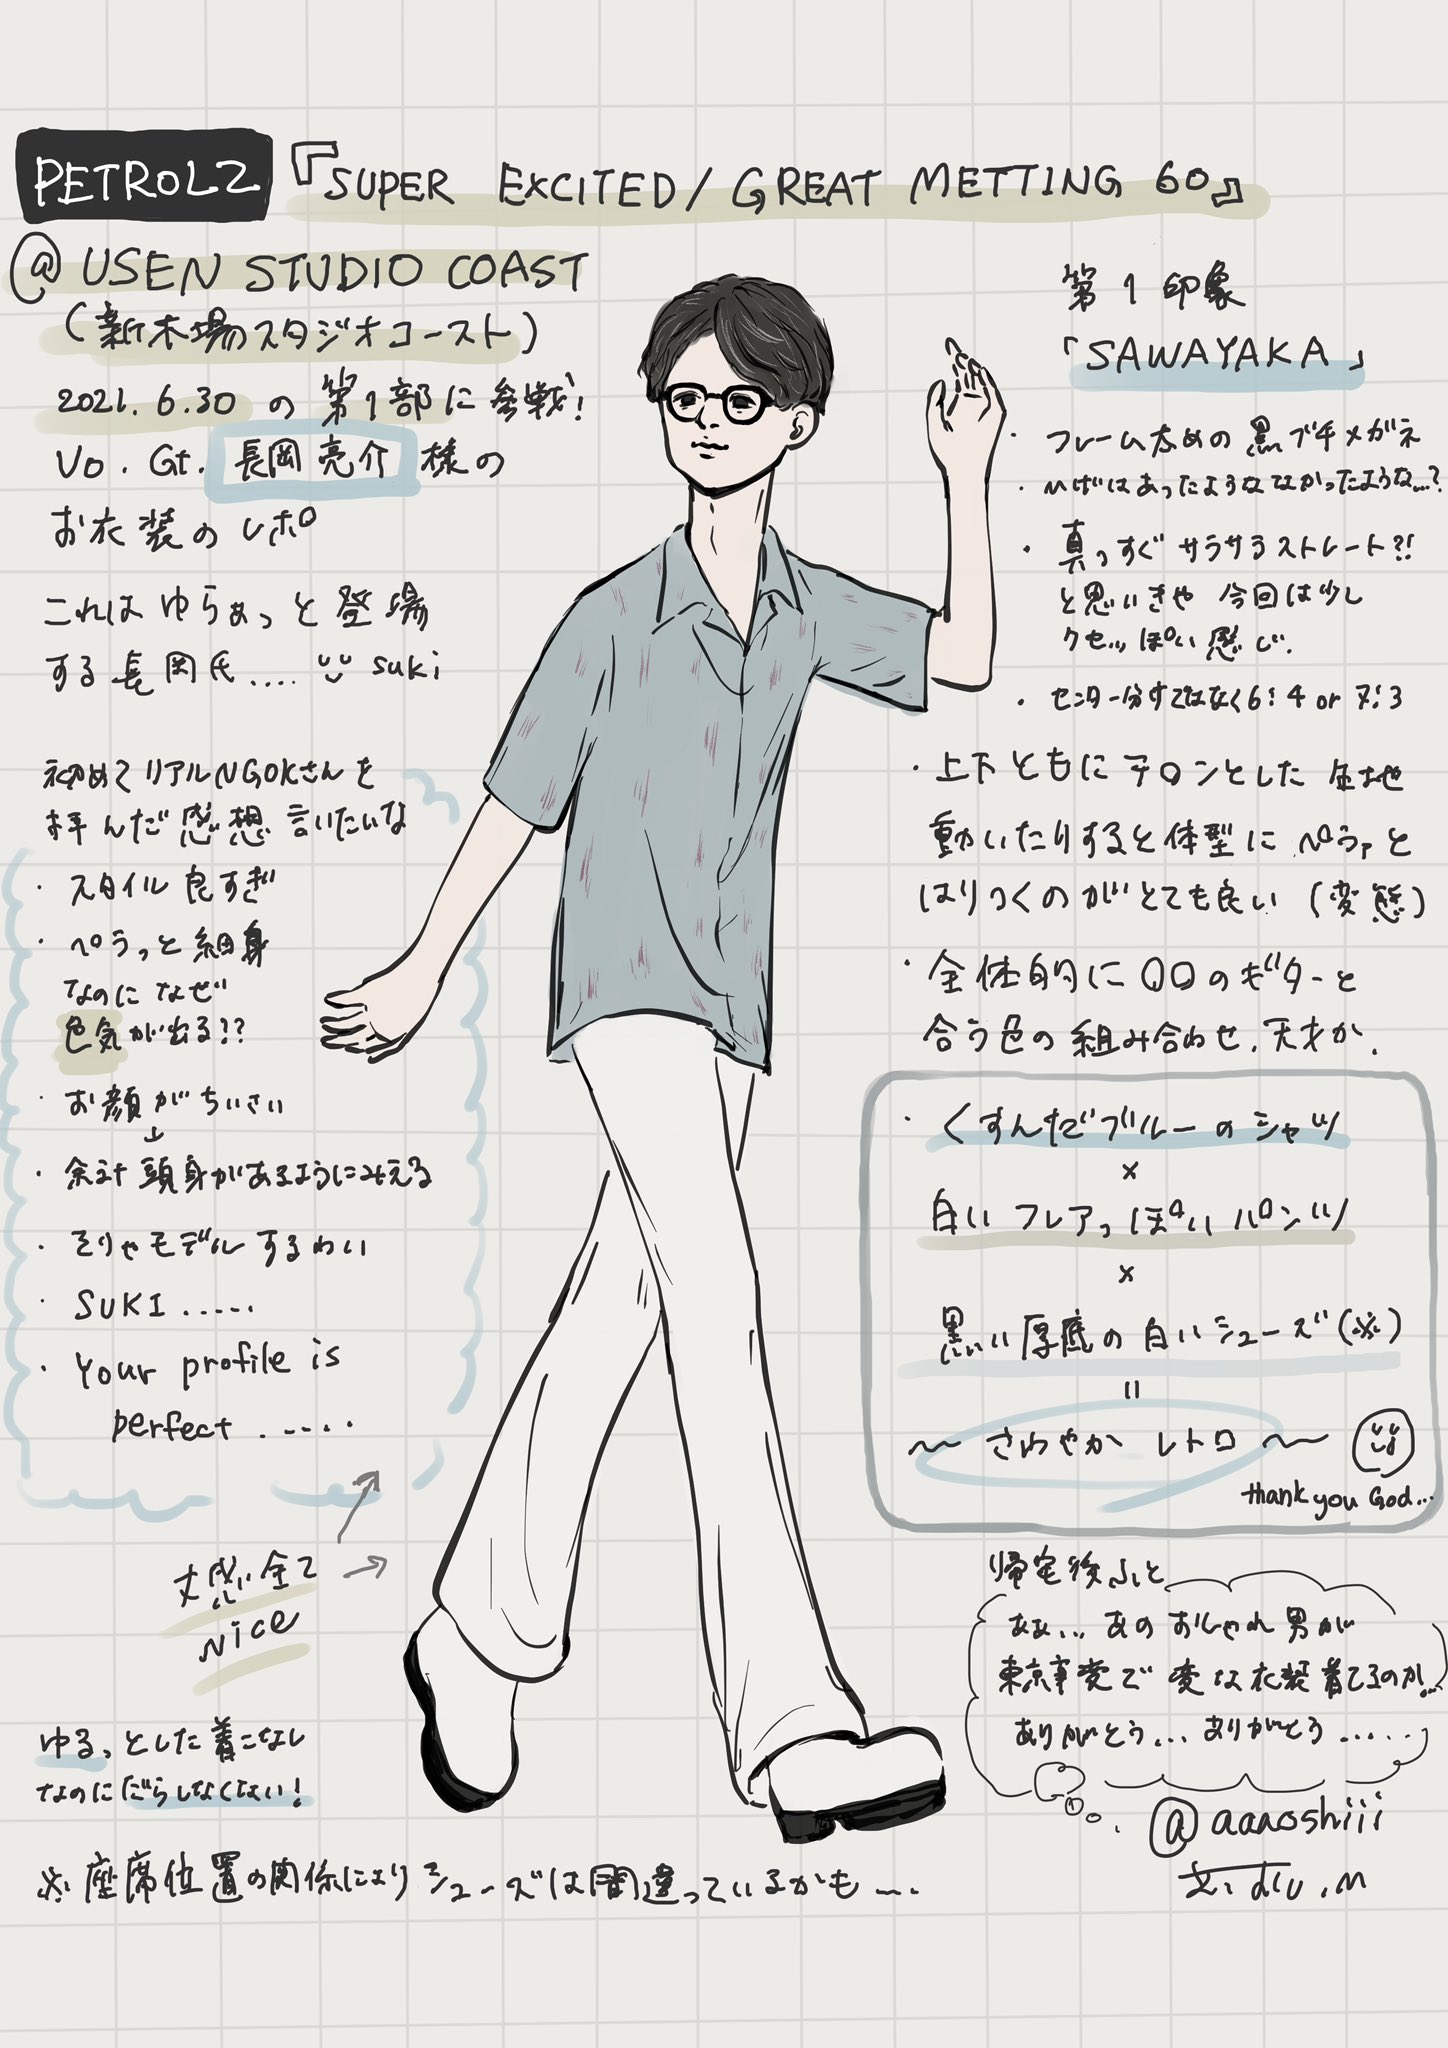 PETROLZ 『SUPER EXCITED/GREAT METTING 60』
@ USEN STUDIO COAST
(新木場のスタジオコースト)
2021.6.30 の 第1部に参戦!
Vo. Gt. 長岡亮介 様の
お衣装のレポ
これは ゆらぁっと 登場
する長岡氏.... suki
初めてリアルNGOKさんを
拝んだ感想言いたいな
・スタイル良すぎ
・ペラっと細身
なのに なぜ
色気が出る??
・お顔がちいさい
↓
・余計頭身があるようにみえる
・そりゃモデルするわい
・SUKI.....
・Your profile is
perfect .....
丈感 全て
Nice
ゆるっとした着こなし
なのにだらしなくない!
※座席位置の関係によりシューズは間違っているかも....
第1印象
「SAWAYAKA」
・フレーム太めの黒ブチメガネ
・ひげはあったようななかったような...?
・真っすぐサラサラストレート?!
と思いきや 今回は少し
クセッぽい感じ.
・センター分けではなく6:4 or 7:3
・上下ともにテロンとした生地
動いたりすると体型にペラァと
はりつくのがとても良い (変態)
・全体的に〇〇のギターと
合う色の組み合わせ.天才か.
・くすんだブルーのシャツ
×
白いフレアっぽいパンツ
×
黒い厚底の白いシューズ(※)
=
〜 さわやか レトロ 〜
thank you God...
帰宅後ふと
ああ... あのおしゃれ男が
東京事変で変な衣装着てるのか...
ありがとう... ありがとう.....
@aaaoshiii